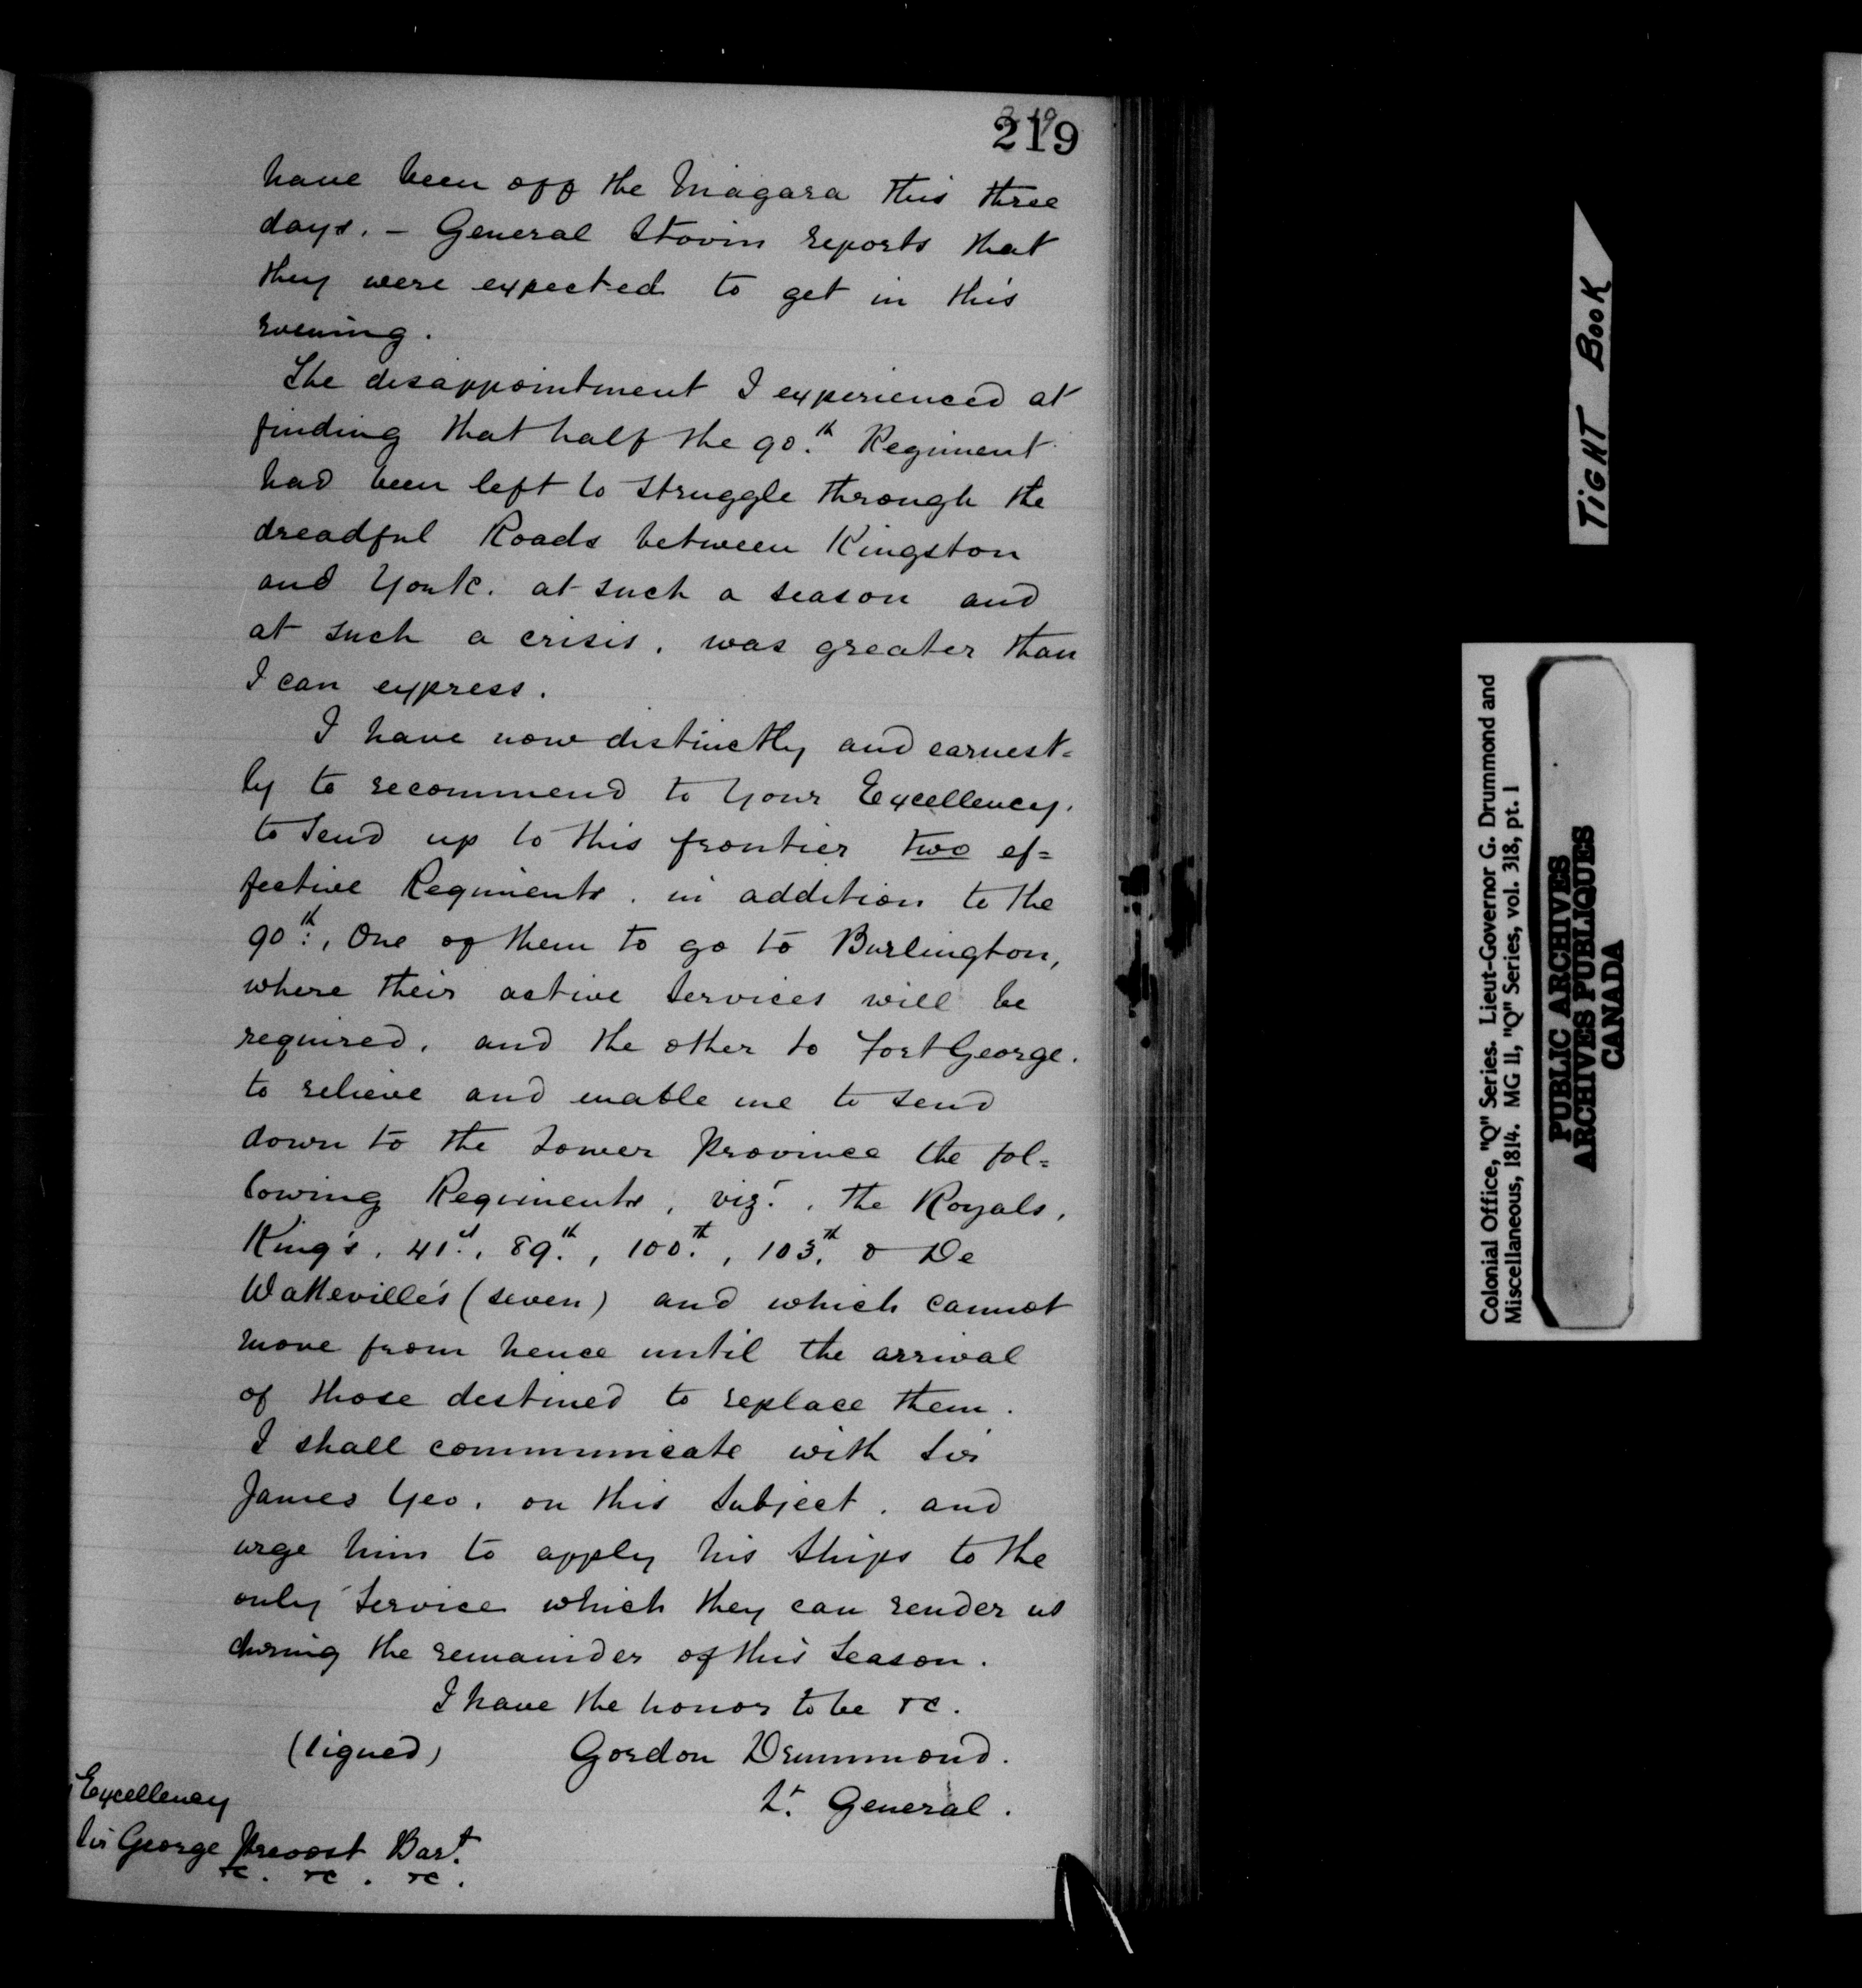 219
have been off the Niagara this three
days. – General Stovin reports that
they were expected to get in this
evening.
The disappointment I experienced at
finding that half the 90.th Regiment
had been left to struggle through the
dreadful Roads between Kingston
and York. at such a season and
at such a crisis, was greater than
I can express.
I have now distinctly and earnest-
ly to recommend to Your Excellency.
to send up to this frontier two ef=
fective Regiments. in addition to the
90th:, One of them to go to Burlington,
where their active Services will be
required, and the other to Fort George.
to relieve and enable me to send
down to the Lower Province the fol=
lowing Regiments, vizt., the Royals,
King's, 41st., 89th., 100.th, 103.th & De
Watteville's (seven) and which cannot
move from hence until the arrival
of those destined to replace them.
I shall communicate with Sir
James Yeo. on this Subject. and
urge him to apply his Ships to the
only Service which they can render us
during the remainder of this Season.
I have the honor to be &c.
(Signed) Gordon Drummond.
Lt. General.
Excellency
Sir George Prevost Bart.
&c. &c. &c.
TIGHT BOOK
Colonial Office, "Q" Series. Lieut-Governor G. Drummond and
Miscellaneous, 1814. MG 11, "Q" Series, vol. 318, pt. 1
PUBLIC ARCHIVES
ARCHIVES PUBLIQUES
CANADA